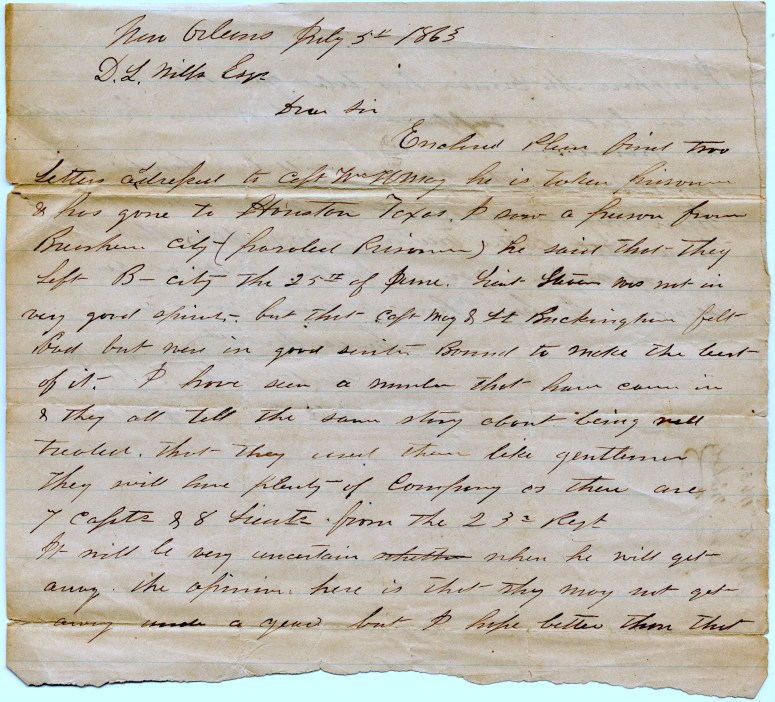 New Orleans July 5th 1863
D. L. Mills Esqr
Dear Sir
Enclosed Please find two
Letters addressed to Capt Wm H May he is taken prisoner
& has gone to Houston Texas. I saw a person from
Brashear City (paroled Prisoner) he said that they
Left B- city the 25th of June. Lieut Stevens was not in
very good spirits. but that Capt May & Lt Buckingham felt
bad but were in good spirits Bound to make the best
of it. I have seen a number that have came in
& they all tell the same story about being well
treated. that they used them like gentlemen
they will have plenty of Company as there are
7 Capts & 8 Lieuts from the 23d Regt
It will be very uncertain whether when he will get
away. the opinion here is that they may not get
away under a year but I hope better than that